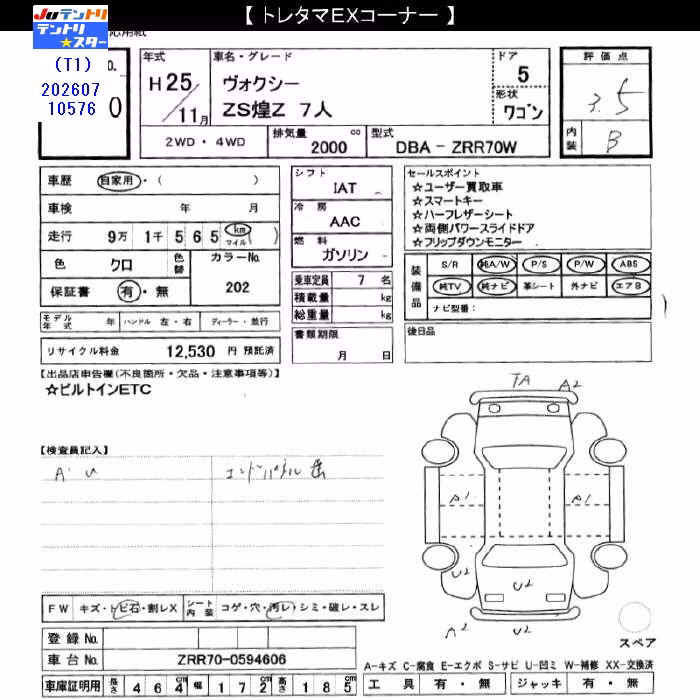 【 トレタマEXコーナー 】
JU テントリ
テントリ
★スター
応用紙
(T1)
202607
10576
No.
0
年式
H 25
11月
車名・グレード
ヴォクシー
ZS煌Z 7人
ドア
5
形状
ワゴン
評価点
3.5
内装
B
2WD ・ 4WD
排気量
2000
cc
型式
DBA − ZRR70W
車歴
自家用 ・( )
車検
年 月
走行
9万 1千 5 6 5
km
マイル
( )
色
クロ
色替
カラーNo.
202
保証書
有 ・ 無
シフト
IAT
冷房
AAC
燃料
ガソリン
乗車定員
7 名
積載量
kg
総重量
kg
セールスポイント
☆ユーザー買取車
☆スマートキー
☆ハーフレザーシート
☆両側パワースライドドア
☆フリップダウンモニター
装備品
S/R 純A/W P/S P/W ABS
純TV 純ナビ 革シート 外ナビ エアB
ナビ型番：
モデル年式
年
ハンドル 左 ・ 右
ディーラー ・ 並行
書類期限
月 日
後日品
リサイクル料金 12,530 円 預託済
【出品店申告欄(不良箇所・欠品・注意事項等)】
☆ビルトインETC
【検査員記入】
A・U
エンドパネル
TA
A2
A1
A1
U2
U2
A2
U2
FW
キズ・トビ石・割レX
シート内装
コゲ・穴・汚レ・シミ・破レ・スレ
登録 No.
車台 No.
ZRR70-0594606
スペア
A−キズ C−腐食 E−エクボ S−サビ U−凹ミ W−補修 XX−交換済
車庫証明用
長さ 4 6 4 cm
幅 1 7 2 cm
高さ 1 8 5 cm
工具 有 ・ 無
ジャッキ 有 ・ 無